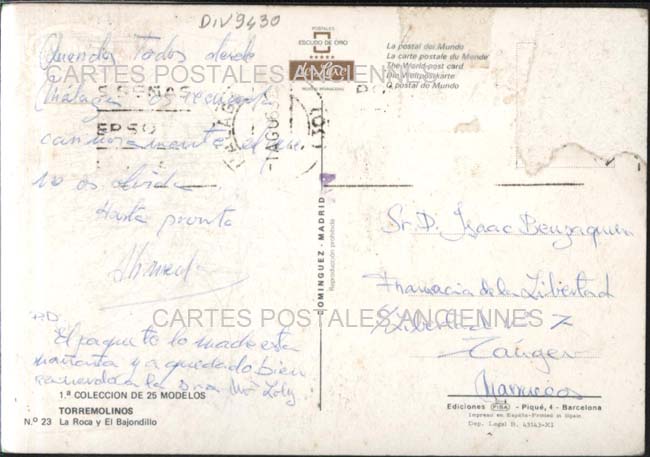 DIV9430
Queridos Todos desde
Málaga os recuerda
el que
no os olvida.
Hasta pronto
Ahmed
PD
El paquete lo mande esta
mañana y a quedado bien
recuerdo a la Sra Mª Loly
1.ª COLECCION DE 25 MODELOS
TORREMOLINOS
N.º 23 La Roca y El Bajondillo
POSTALES
ESCUDO DE ORO
La postal del Mundo
La carte postale du Monde
The World-post card
Die Weltpostkarte
O postal do Mundo
EPSO
1 AGO
DOMINGUEZ - MADRID
Reproducción prohibida
Sr. D. Isaac Benzaquen
Farmacia de la Libertad
c/ Libertad nº 7
Tanger
Marruecos
Ediciones FISA - Piqué, 4 - Barcelona
Impreso en España-Printed in Spain
Dep. Legal B. 43143-XI
CARTES POSTALES ANCIENNES
CARTES POSTALES ANCIENNES